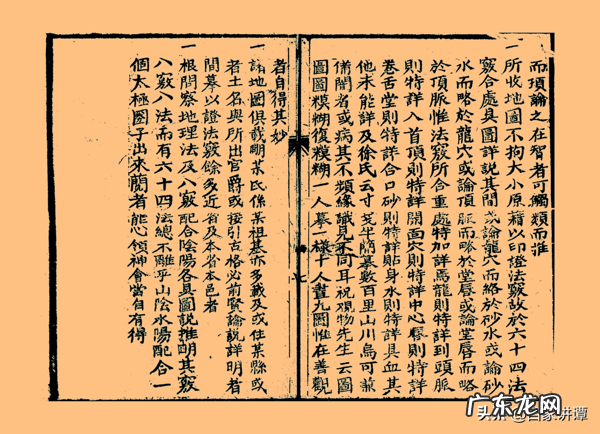 而項論之在智者可觸類而推
一所收地圖不拘大小原藉以印證法竅故於六十四法
竅合處具圖詳說其間或論龍穴而略於砂水或論砂
水而略於龍穴或論頂脈而略於堂唇或論堂唇而略
於頂脈惟法竅所合重處特加詳馬龍則特詳到頭脈
則特詳入首頂則特詳開面穴則特詳中心唇則特詳
卷舌堂則特詳合口砂則特詳貼身水則特詳血其
他未能詳及徐氏云寸半隨摹數百里山川烏可兼
備閱者或病其不類緣識見不同耳祝觀物先生云圖
圖圖糢糊復糢糊一人摹一樣十人畫九圖惟在善觀
七
者自得其妙
一諸地圖俱載明某氏係某祖墓亦多載及或任某縣或
者土名與所出官爵或接引古格必前賢論說詳明者
間摹以證法竅餘多近省及本省本邑者
一根開察地理法及八竅配合陰陽各具圖說推明其竅
八竅八法而有六十四法總不離乎山陰水陽配合一
個太極圈子出來閱者能心領神會當自有得
头条@百家讲谭
广东龙网